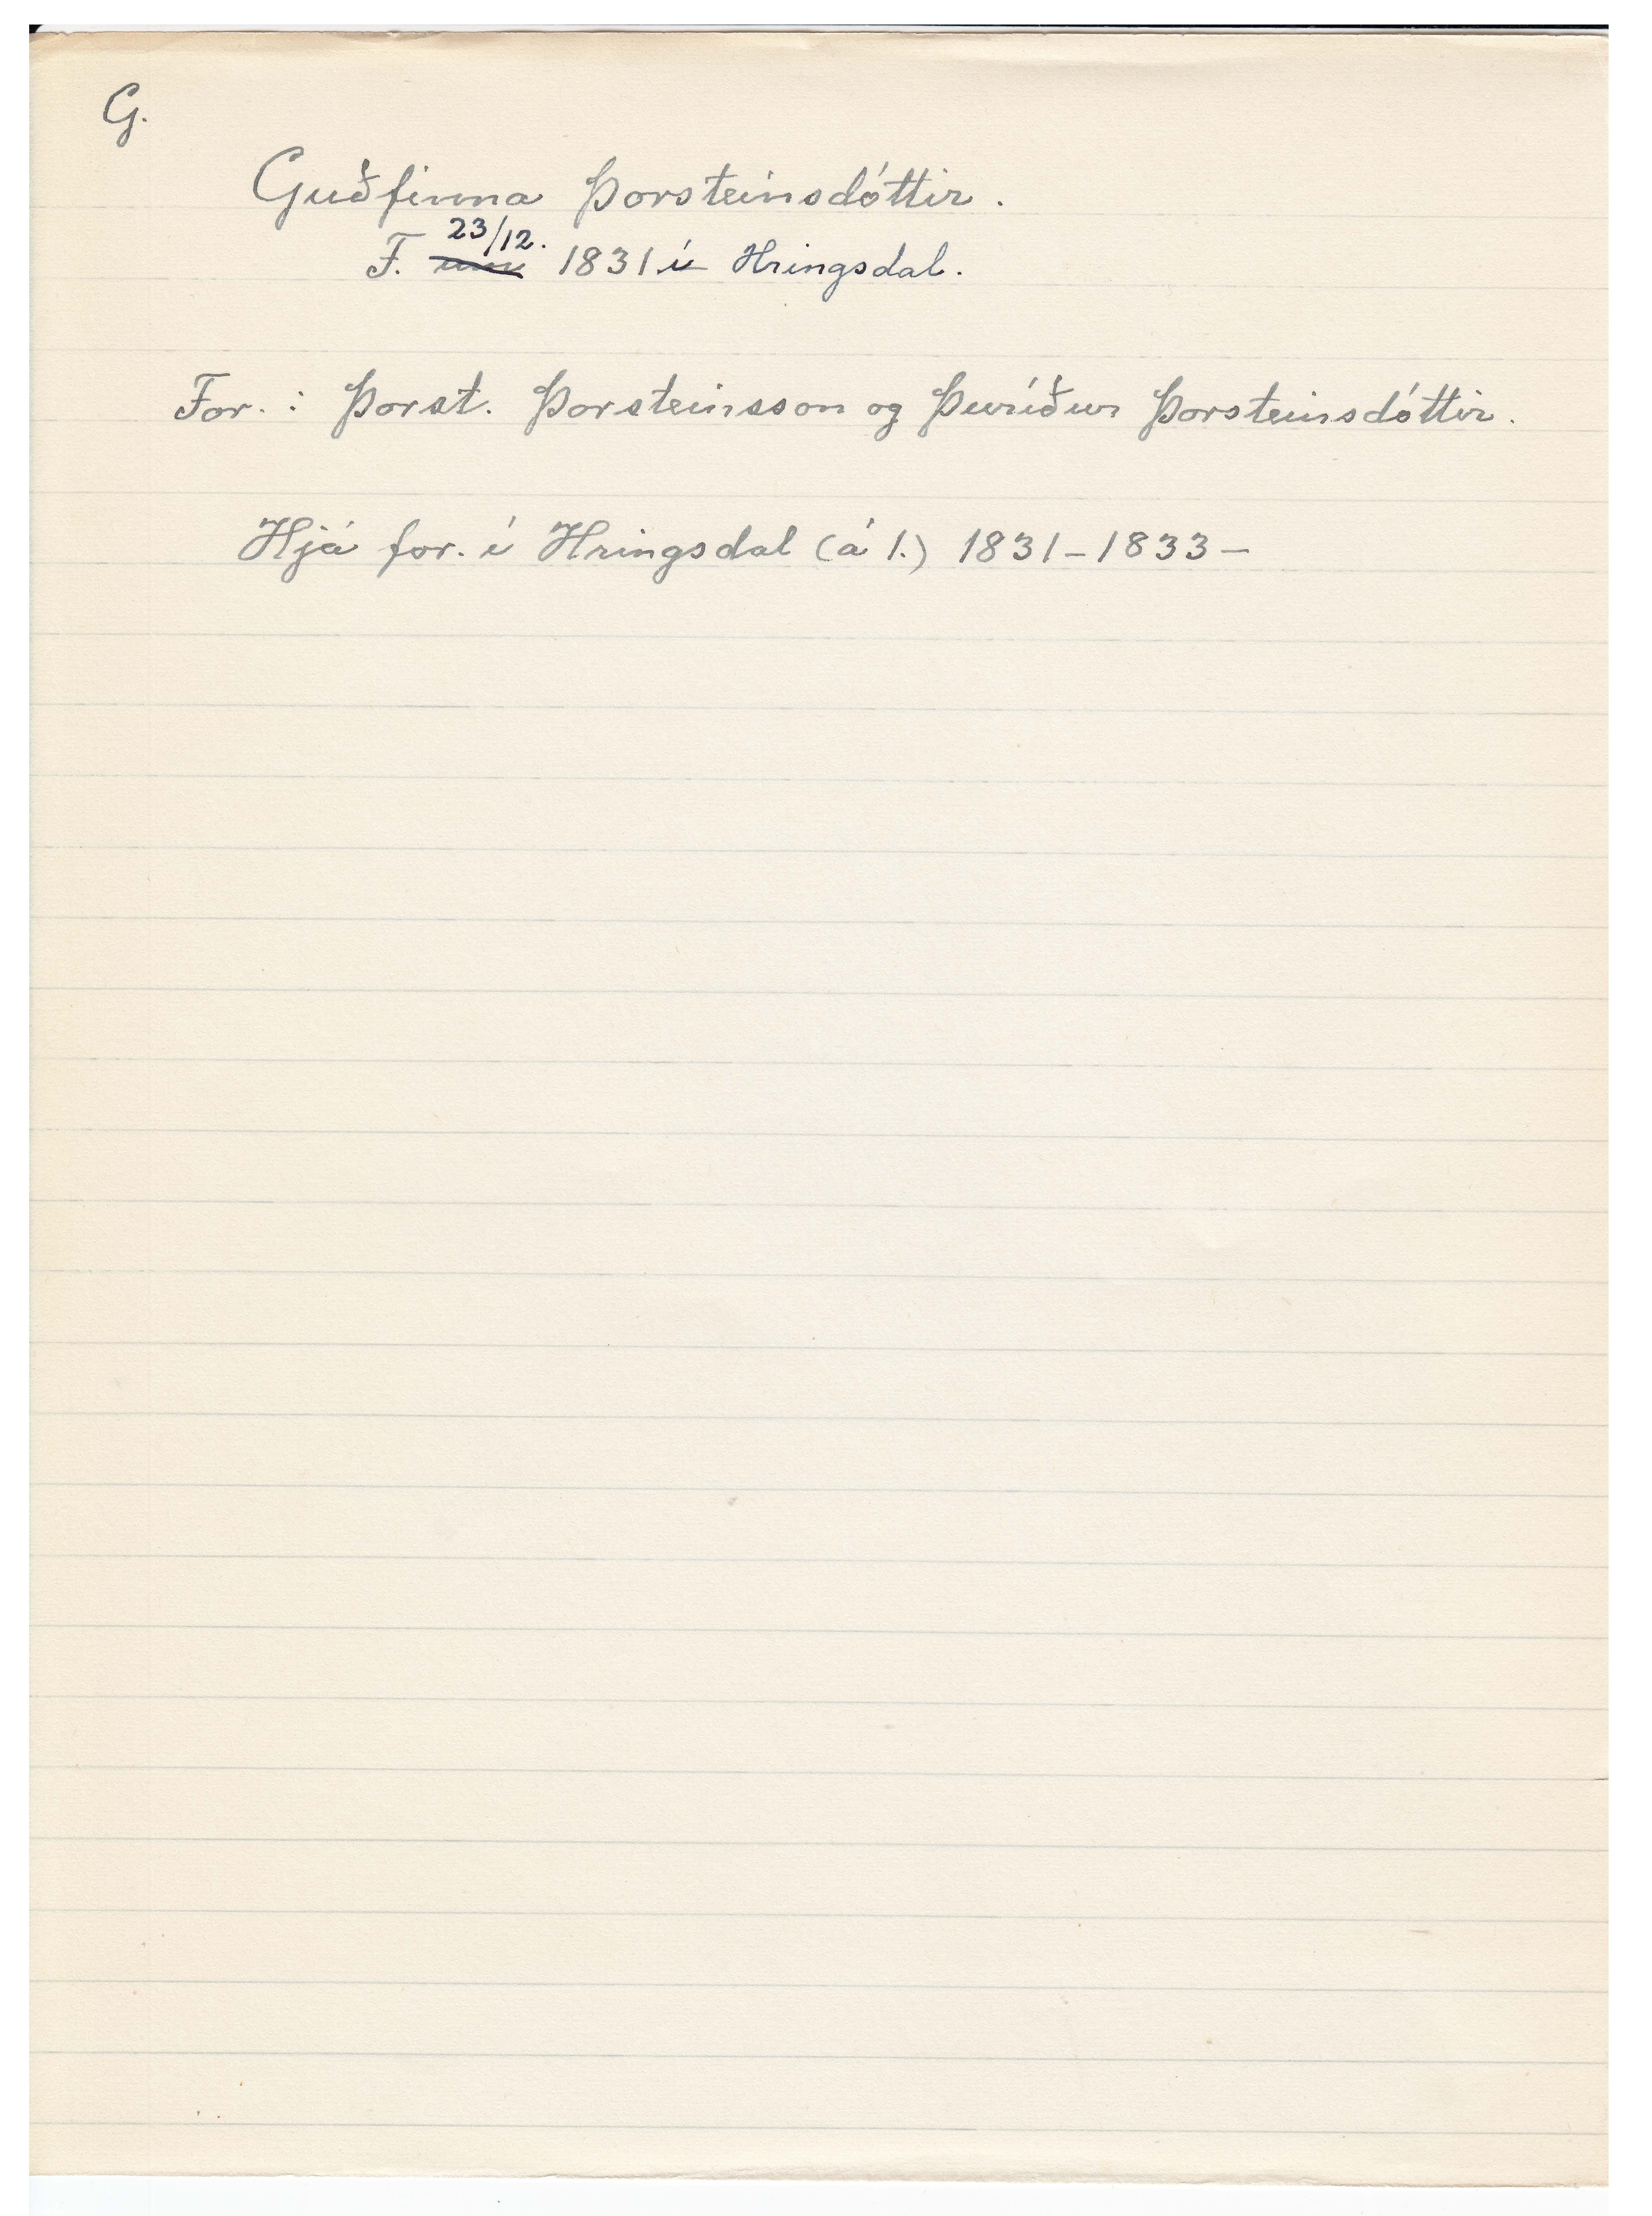 G.
Guðfinna Þorsteinsdóttir.
F. 23/12. 1831 í Hringsdal.
For.: Þorst. Þorsteinsson og Þuríður Þorsteinsdóttir.
Hjá for. í Hringsdal (á 1.) 1831-1833-